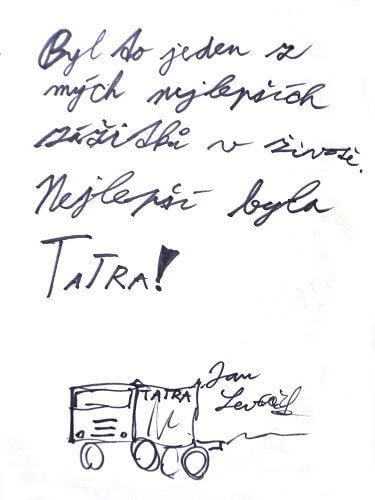 Byl to jeden z
mých nejlepších
zážitků v životě.
Nejlepší byla
TATRA!
TATRA
Jan